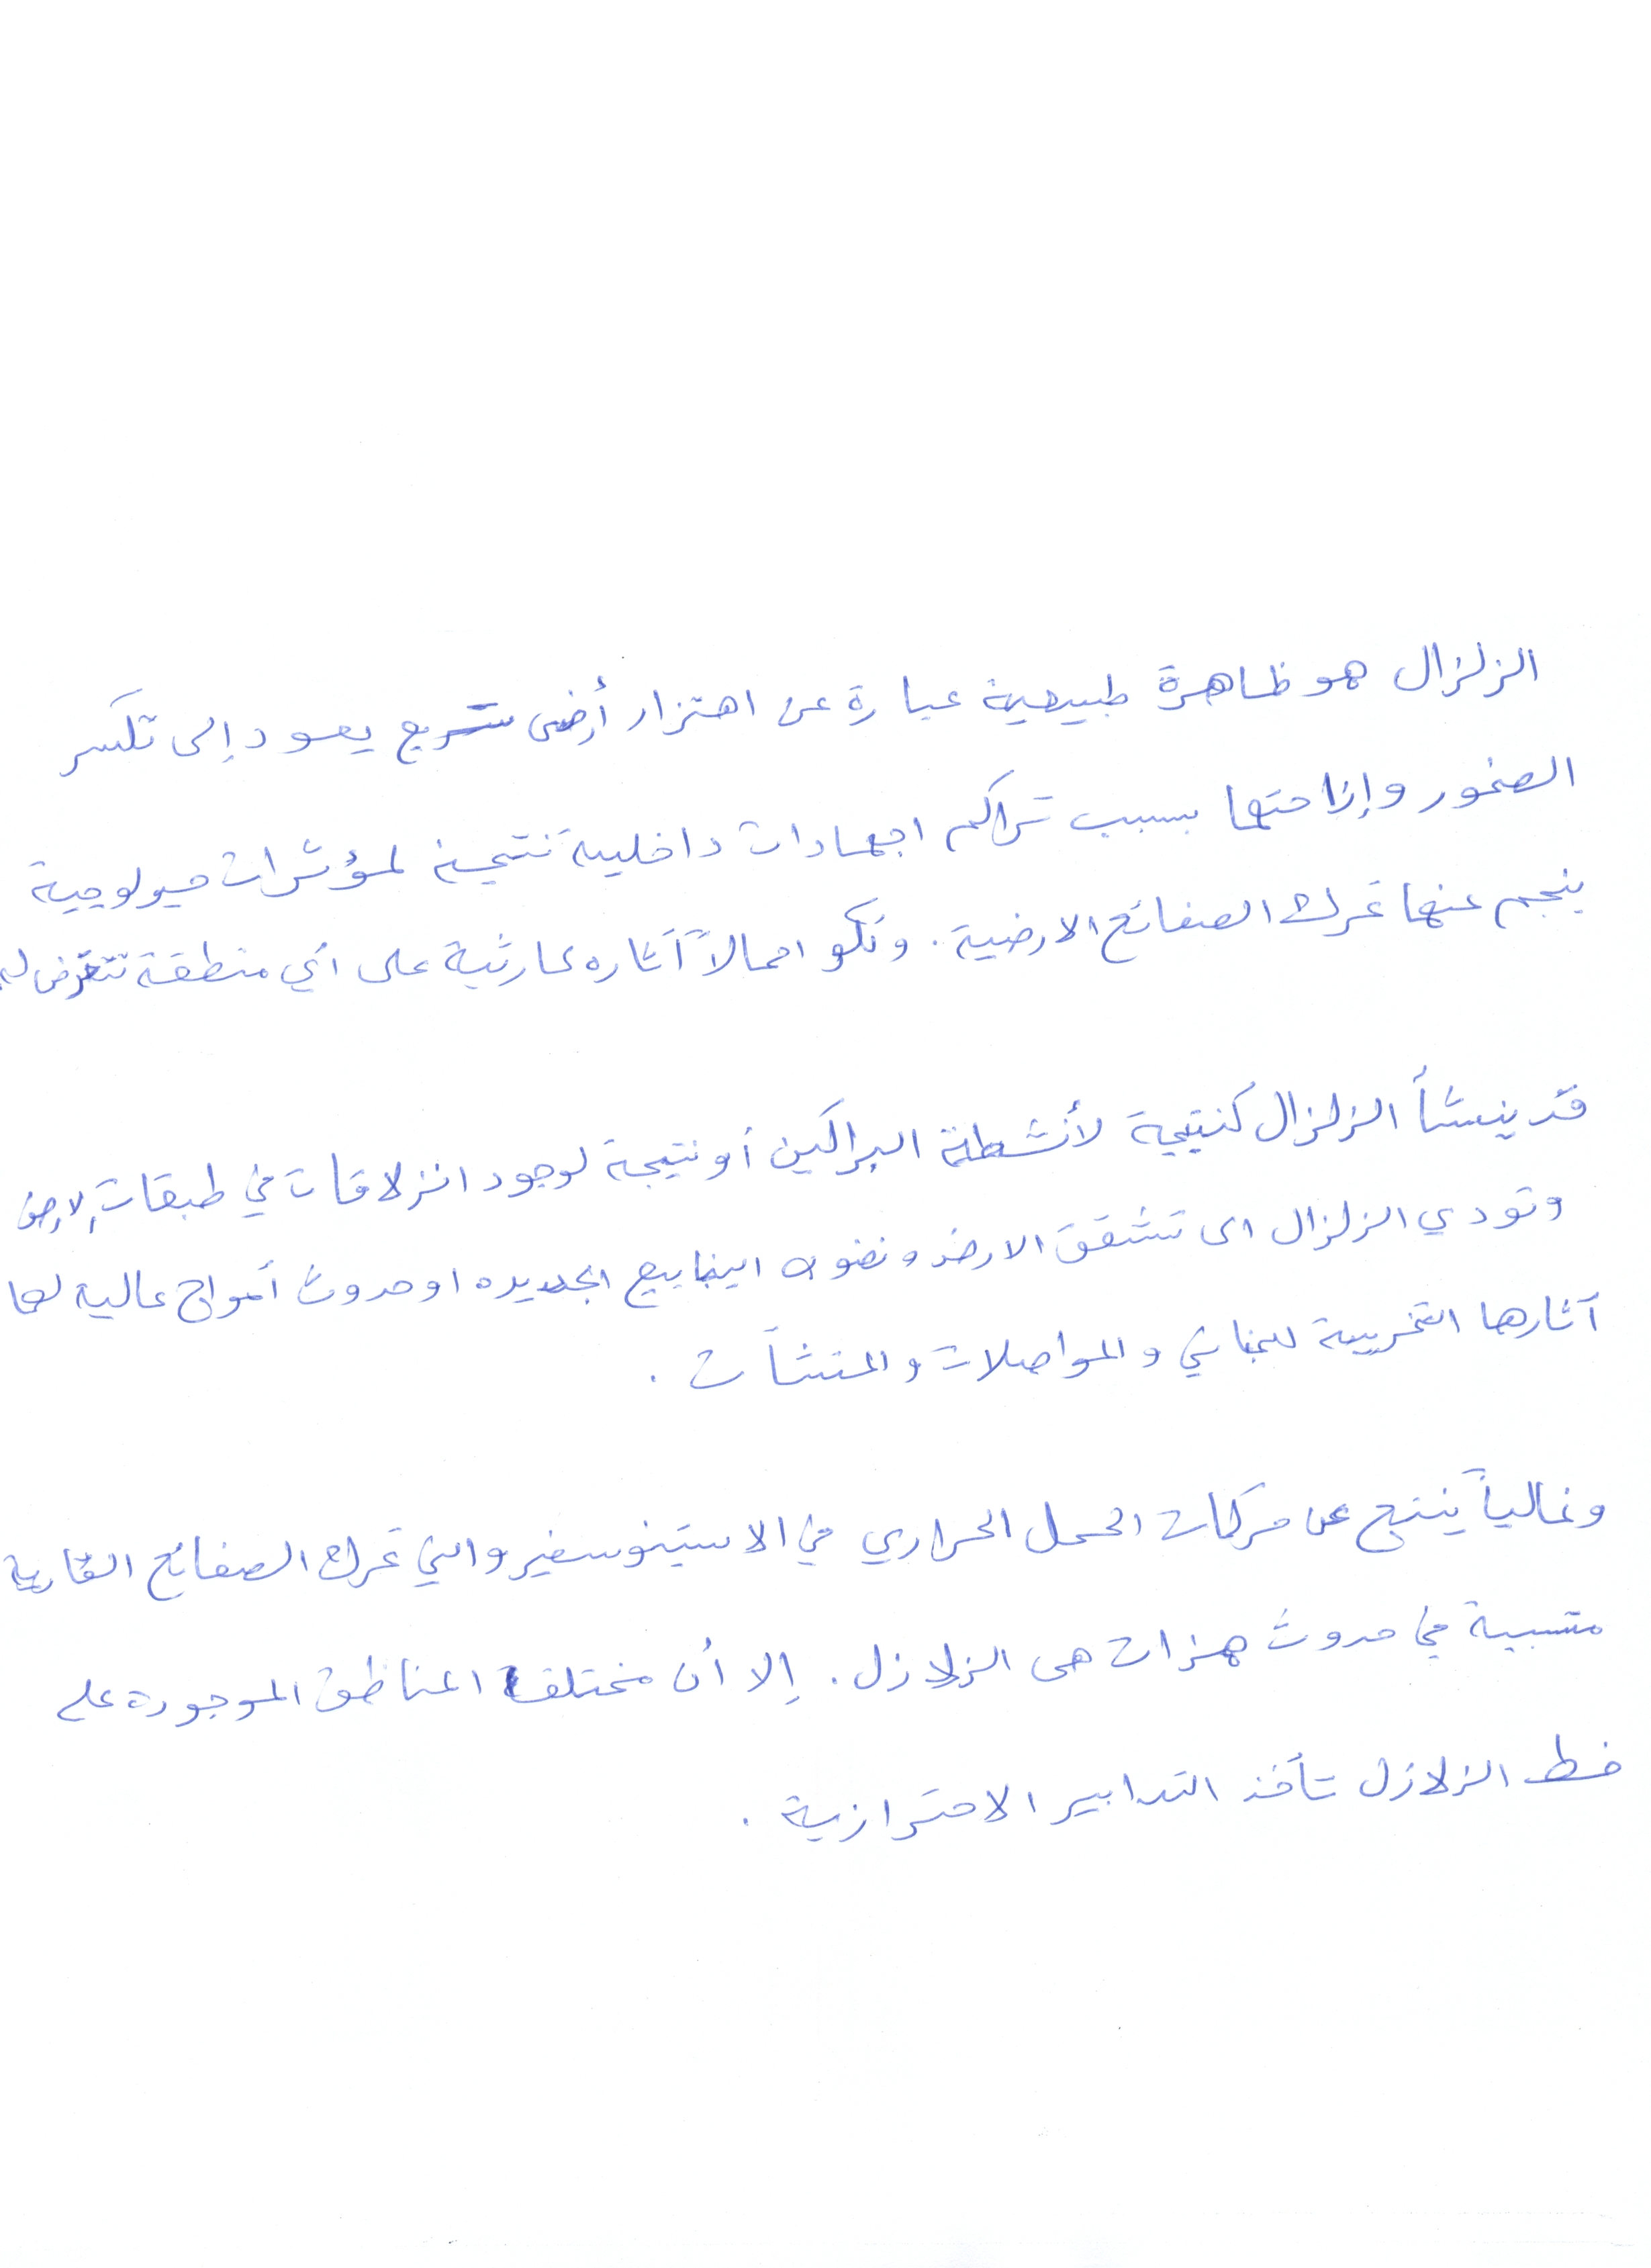 الزلزال هو ظاهرة طبيعية عبارة عن اهتزاز أرضى سريع يعود إلى تكسر
الصخور وإزاحتها بسبب تراكم اجهادات داخلية نتيجة لمؤثرات جيولوجية
ينجم عنها تحرك الصفائح الارضية. وتكو اجمالاً آثاره كارثية على أي منطقة تتعرض له
قد ينشأ الزلزال كنتيجة لأنشطة البراكين أو نتيجة لوجود انزلاقات في طبقات الارض
وتودي الزلزال الى تشقق الارض ونضوب الينابيع الجديده او حدوث أمواج عالية لها
آثارها التخريبية للمباني والمواصلات والمنشآت .
وغالباً ينتج عن حركات الحمل الحراري في الاستينوسفير والتي تحرك الصفائح القارية
متسببة في حدوث هزات هى الزلازل. إلا أن مختلف المناطق الموجودة على
خط الزلازل تأخذ التدابير الاحترازية .